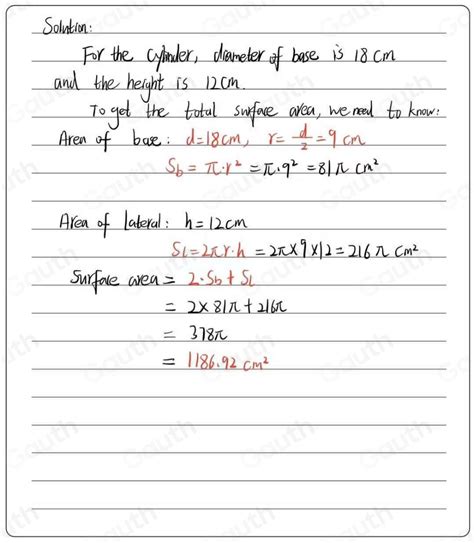 Solution:
For the cylinder, diameter of base is 18 cm
and the height is 12 cm.
To get the total surface area, we need to know:
Area of base: d=18cm, r=d/2=9 cm
Sb = π·r² = π·9² = 81π cm²
Area of lateral: h=12cm
Sl=2πr·h = 2π×9×12=216π cm²
Surface area = 2·Sb+Sl
= 2×81π+216π
= 378π
= 1186.92 cm²